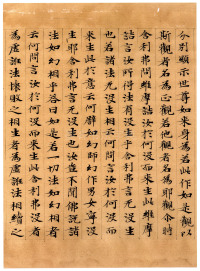 分別顯示世尊如來身為若此作如是觀以
斯觀者名為正觀若他觀者名為邪觀尒時
舍利弗問維摩詰汝於何沒而來生此維摩
詰言汝所得法有沒生乎舍利弗言无沒生
也若諸法无沒生相云何問言汝於何沒而
來生此於意云何譬如幻師幻作男女寧沒
生耶舍利弗言无沒生也汝豈不聞佛說諸
法如幻相乎答曰如是若一切法如幻相者
云何問言汝於何沒而來生此舍利弗沒者
為虛誑法壞敗之相生者為虛誑法相續之